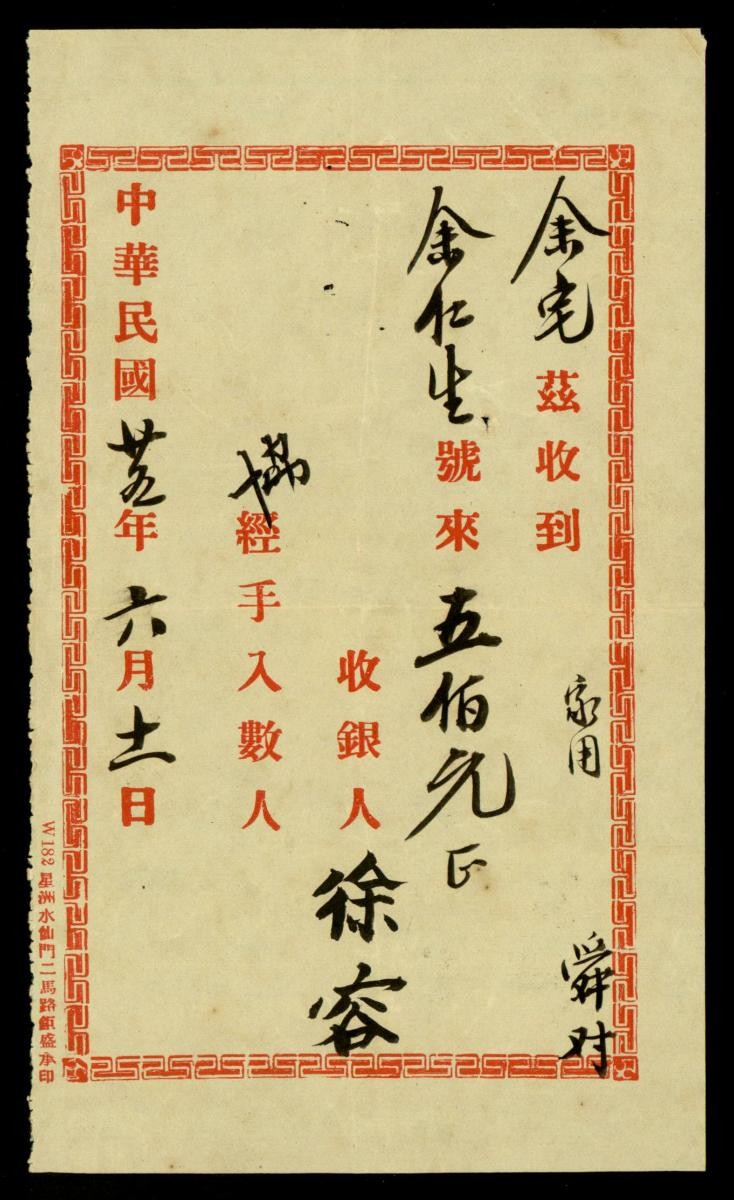 余宅茲收到 家用
舜对
余仁生號來五佰元正
收銀人徐容
經手入數人
中華民國廿五年六月十一日
W 182 星洲水仙門二馬路鉅盛承印